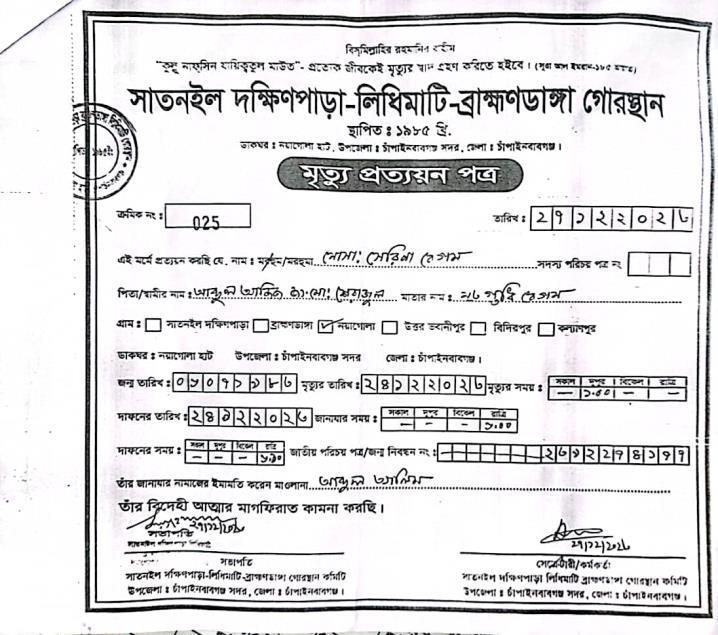 বিসমিল্লাহির রহমানির রাহীম
"কুল্লু নাফসিন যায়িকুতুল মাউত"- প্রত্যেক জীবকেই মৃত্যুর স্বাদ গ্রহণ করিতে হইবে। (সূরা আল ইমরান-১৮৫ আয়াত)
সাতনইল দক্ষিণপাড়া-লিধিমাটি-ব্রাহ্মণডাঙ্গা গোরস্থান
স্থাপিত : ১৯৮৫ খ্রি.
ডাকঘর : নয়াগোলা হাট, উপজেলা : চাঁপাইনবাবগঞ্জ সদর, জেলা : চাঁপাইনবাবগঞ্জ।
মৃত্যু প্রত্যয়ন পত্র
ক্রমিক নং : 025 তারিখ : ২৭১২২০২৬
এই মর্মে প্রত্যয়ন করছি যে, নাম : মরহুম/মরহুমা মোসা: সেরিনা বেগম সদস্য পরিচয় পত্র নং
পিতা/স্বামীর নাম : আব্দুল মাতার নাম : বেগম
গ্রাম : সাতনইল দক্ষিণপাড়া ব্রাহ্মণডাঙ্গা নয়াগোলা উত্তর ভবানীপুর বিদিরপুর কল্যানপুর
ডাকঘর : নয়াগোলা হাট উপজেলা : চাঁপাইনবাবগঞ্জ সদর জেলা : চাঁপাইনবাবগঞ্জ।
জন্ম তারিখ : ০১০৭১৯৮৬ মৃত্যুর তারিখ : ২৪১২২০২৬ মৃত্যুর সময় : সকাল দুপুর বিকেল রাত্রি
— ১.৩০ — —
দাফনের তারিখ : ২৪১২২০২৬ জানাযার সময় : সকাল দুপুর বিকেল রাত্রি
— — — ৮.৩০
দাফনের সময় : সকাল দুপুর বিকেল রাত্রি জাতীয় পরিচয় পত্র/জন্ম নিবন্ধন নং : ২৬১২২৭৪১৭৭
— — —
তাঁর জানাযার নামাজের ইমামতি করেন মাওলানা আব্দুল আলিম
তাঁর বিদেহী আত্মার মাগফিরাত কামনা করছি।
২৭/১২/২৬
সভাপতি
২৭/১২/২৬
সভাপতি
সাতনইল দক্ষিণপাড়া-লিধিমাটি-ব্রাহ্মণডাঙ্গা গোরস্থান কমিটি
উপজেলা : চাঁপাইনবাবগঞ্জ সদর, জেলা : চাঁপাইনবাবগঞ্জ।
সেক্রেটারী/কর্মকর্তা
সাতনইল দক্ষিণপাড়া-লিধিমাটি ব্রাহ্মণডাঙ্গা গোরস্থান কমিটি
উপজেলা : চাঁপাইনবাবগঞ্জ সদর, জেলা : চাঁপাইনবাবগঞ্জ।